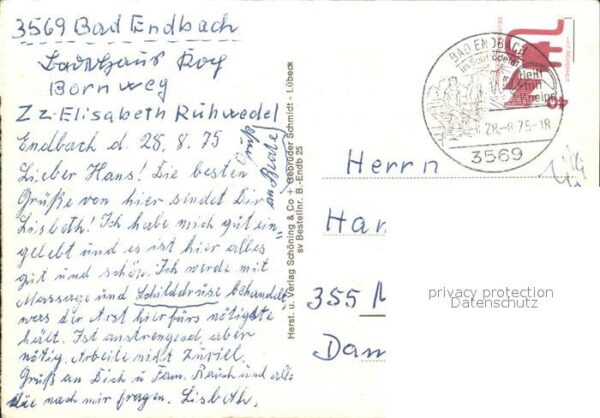 3569 Bad Endbach
Landhaus Koch
Bornweg
Z z. Elisabeth Rühwedel
Endbach d. 28. 8. 75
Lieber Hans! Die besten
Grüße von hier sendet Dir
Lisbeth! Ich habe mich gut ein-
gelebt und es ist hier alles
gut und schön. Ich werde mit
Massage und Schilddrüse behandelt
was der Arzt hier fürs nötigste
hält. Ist anstrengend aber
nötig. Arbeite nicht zuviel.
Gruß an Dich u. Fam. Rauch und alle
die nach mir fragen. Lisbeth.
Gruß
an Beate
Herst. u. Verlag Schöning & Co + Gebrüder Schmidt · Lübeck
sv Bestellnr. B.-Endb 25
BAD ENDBACH
Heilt
nach
Kneipp
28.-8.75-18
3569
40
Herrn
Han
355 M
Dan
privacy protection
Datenschutz